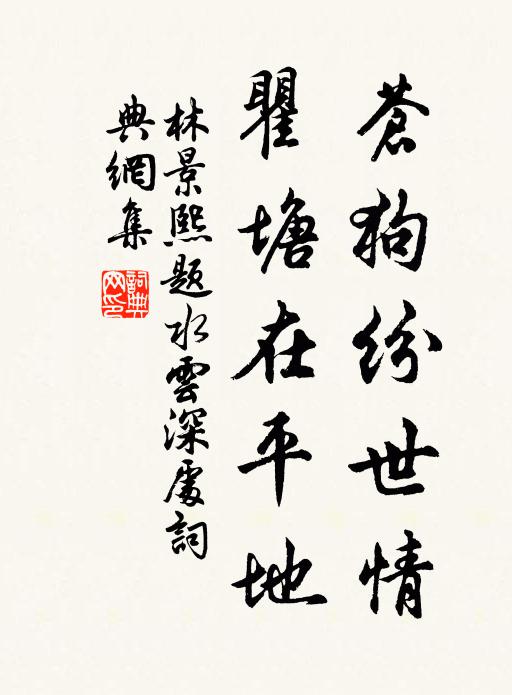 蒼狗紛世情
瞿塘在平地
林景熙題水雲深處詞
典網集
詞典網印